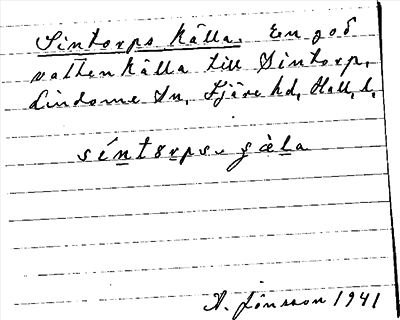 Sintorps källa. En god
vattenkälla till Sintorp,
Lindome sn, Fjäre hd, Hall. l.
síntorps- çèla
A. Jönsson 1941